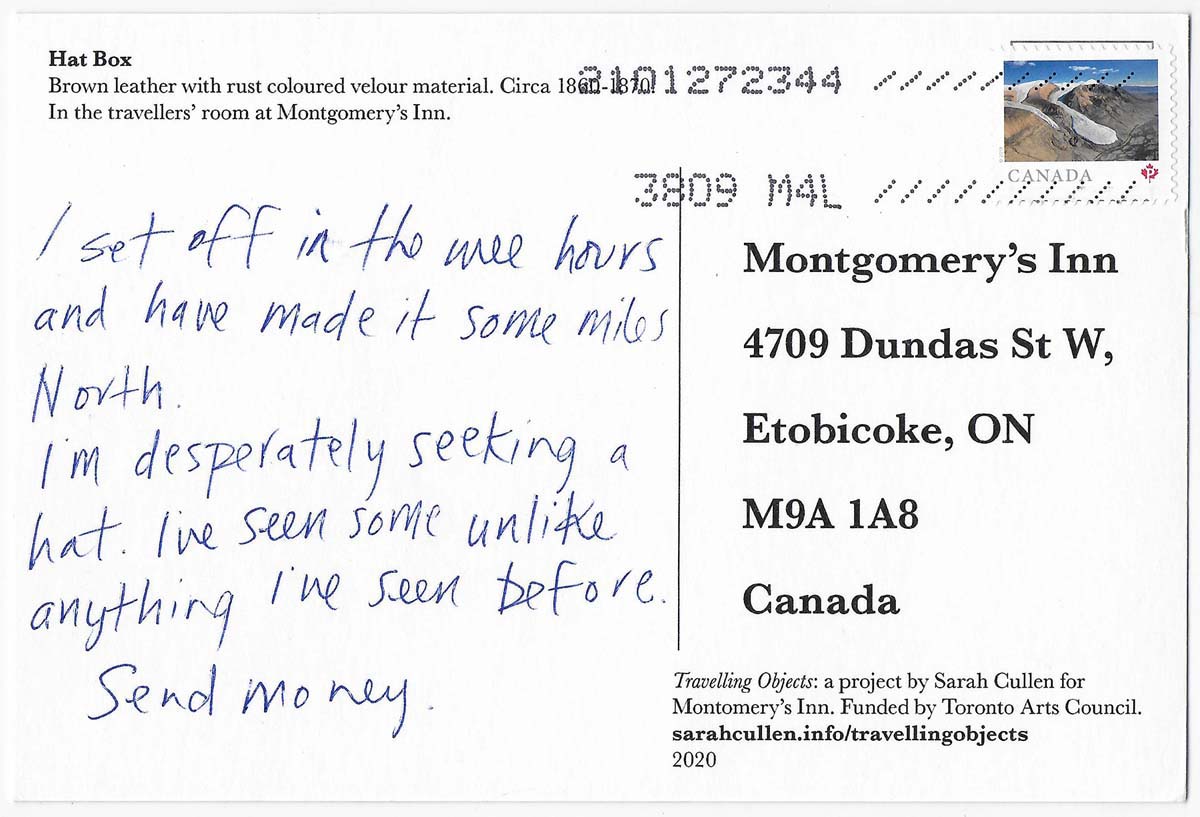 Hat Box
Brown leather with rust coloured velour material. Circa 1860-1870.
In the travellers' room at Montgomery's Inn.
3101272344
CANADA
P
3809 M4L
I set off in the wee hours
and have made it some miles
North.
I'm desperately seeking a
hat. I've seen some unlike
anything I've seen before.
Send money.
Montgomery's Inn
4709 Dundas St W,
Etobicoke, ON
M9A 1A8
Canada
Travelling Objects: a project by Sarah Cullen for
Montomery's Inn. Funded by Toronto Arts Council.
sarahcullen.info/travellingobjects
2020